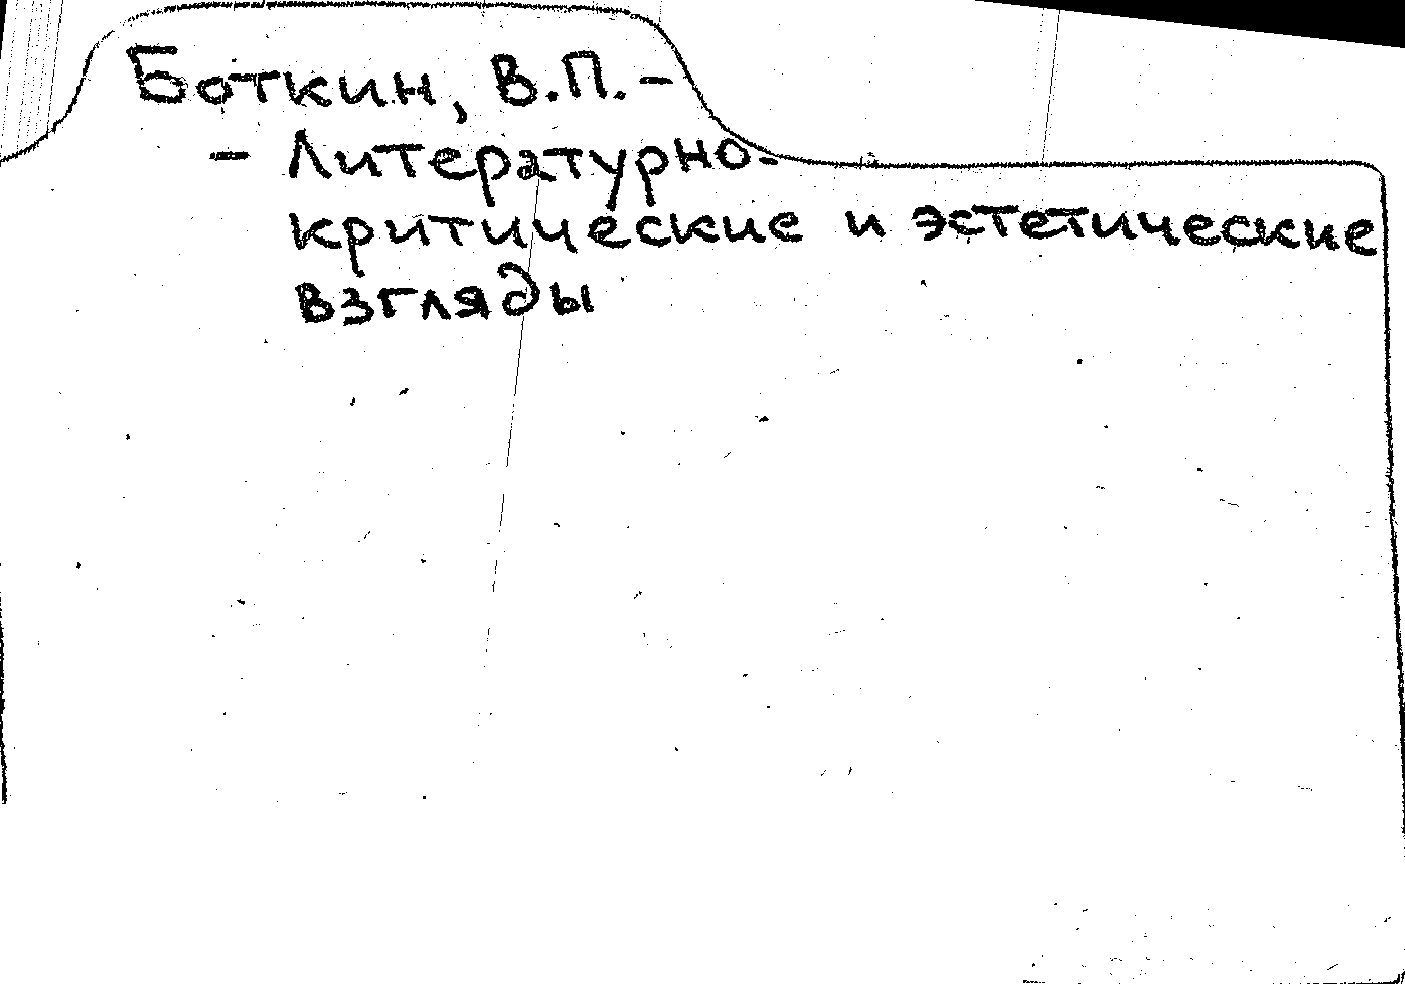 Боткин, В.П. -
- Литературно-
критические и эстетические
взгляды